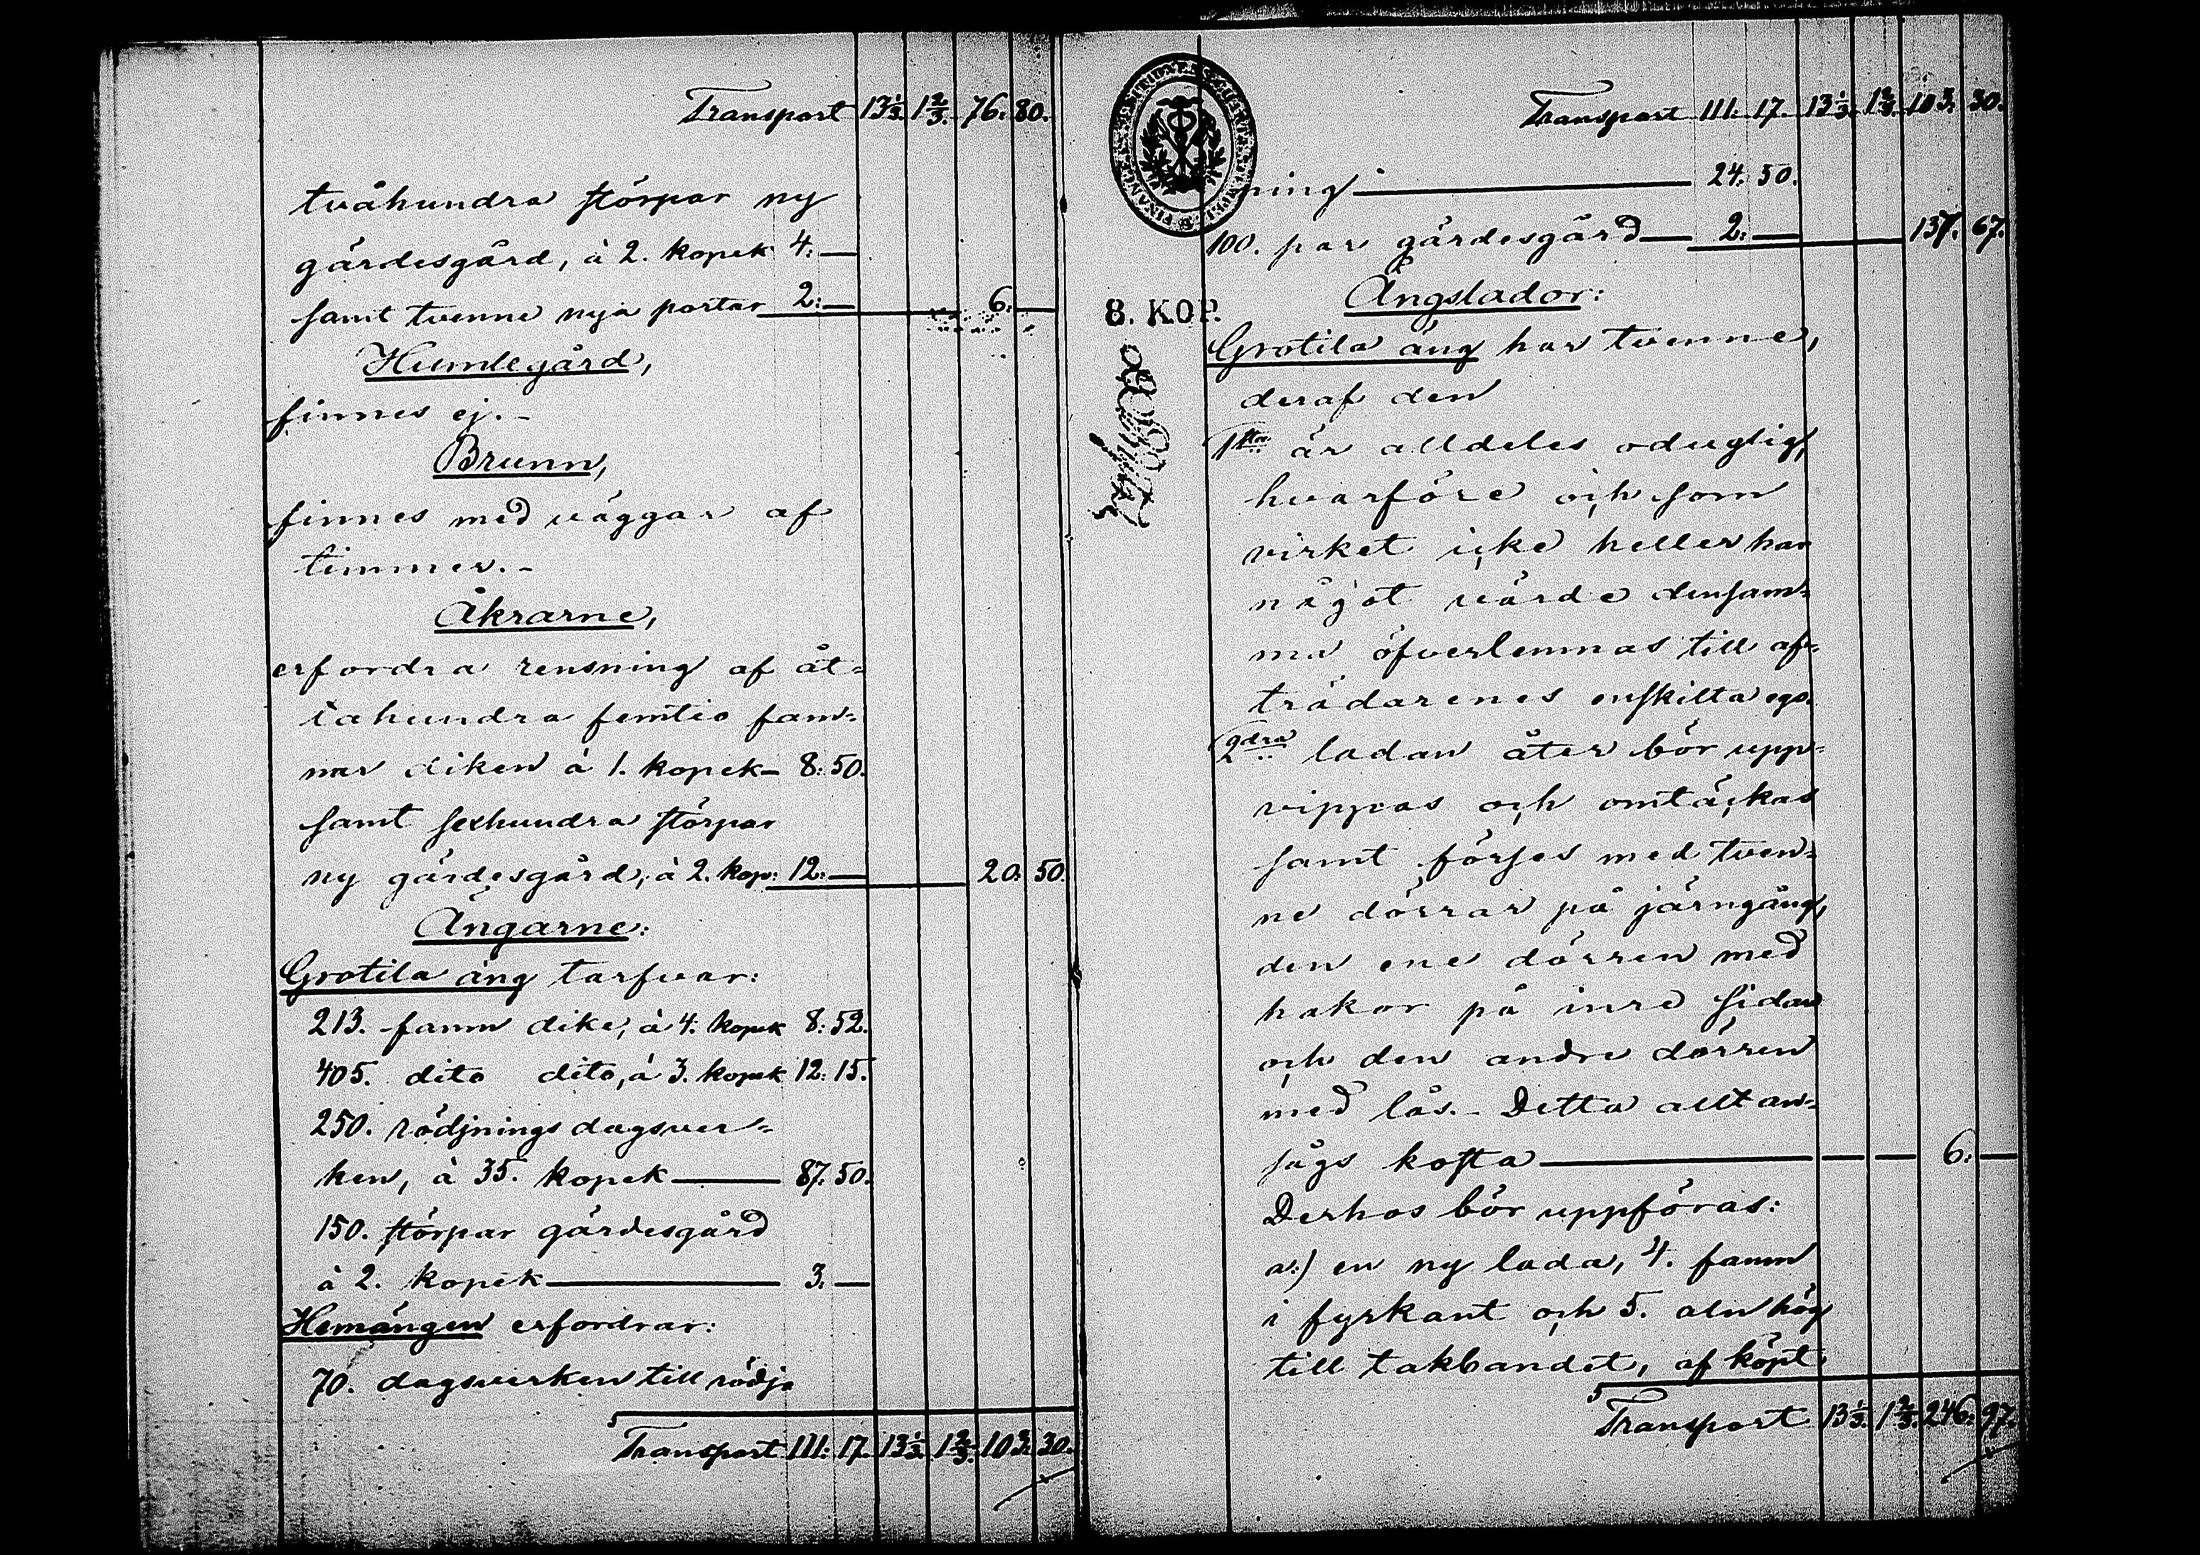 Transport 13 1/3. 1 2/3. 76. 80.
tvåhundra störpar ny
gärdesgård, à 2. kopek 4: —
samt tvenne nya portar 2: — 6: —
Humlegård,
finnes ej. –
Brunn,
finnes med väggar af
timmer. –
Åkrarne,
erfordra rensning af åt=
tahundra femtio fam=
nar diken à 1. kopek – 8: 50.
samt sexhundra störpar
ny gärdesgård, à 2. kop: 12: — 20. 50.
Ängarne:
Grotila äng tarfvar:
213. famn dike, à 4. kopek 8: 52.
405. dito dito, à 3. kopek 12: 15.
250. rödjnings dagsver=
ken, à 35. kopek — 87. 50.
150. störpar gärdesgård
à 2. kopek — 3: —
Hemängen erfordrar:
70. dagsverken till rödj
Transport 111: 17. 13 1/3. 1 2/3. 103. 30.
Transport 111: 17. 13 1/3. 1 2/3. 103. 30.
ning — 24: 50.
100. par gärdesgård — 2: — 137. 67.
8. KOP.
Ängslador:
Grotila äng har tvenne,
deraf den
1sta är alldeles oduglig,
hvarföre och som
virket icke heller har
något värde densam=
ma öfverlemnas till af=
trädarenes enskilta ego.
2dra ladan åter bör upp=
vippas och omtäckas
samt förses med tven=
ne dörrar på järngång,
den ene dörren med
hakor på inre sidan
och den andre dörren
med lås. – Detta allt an=
sågs kosta — 6: —
Derhos bör uppföras:
a:) en ny lada, 4. famn
i fyrkant och 5. aln hög
till takbandet, af köpt
Transport 13 1/3. 1 2/3. 246. 97.